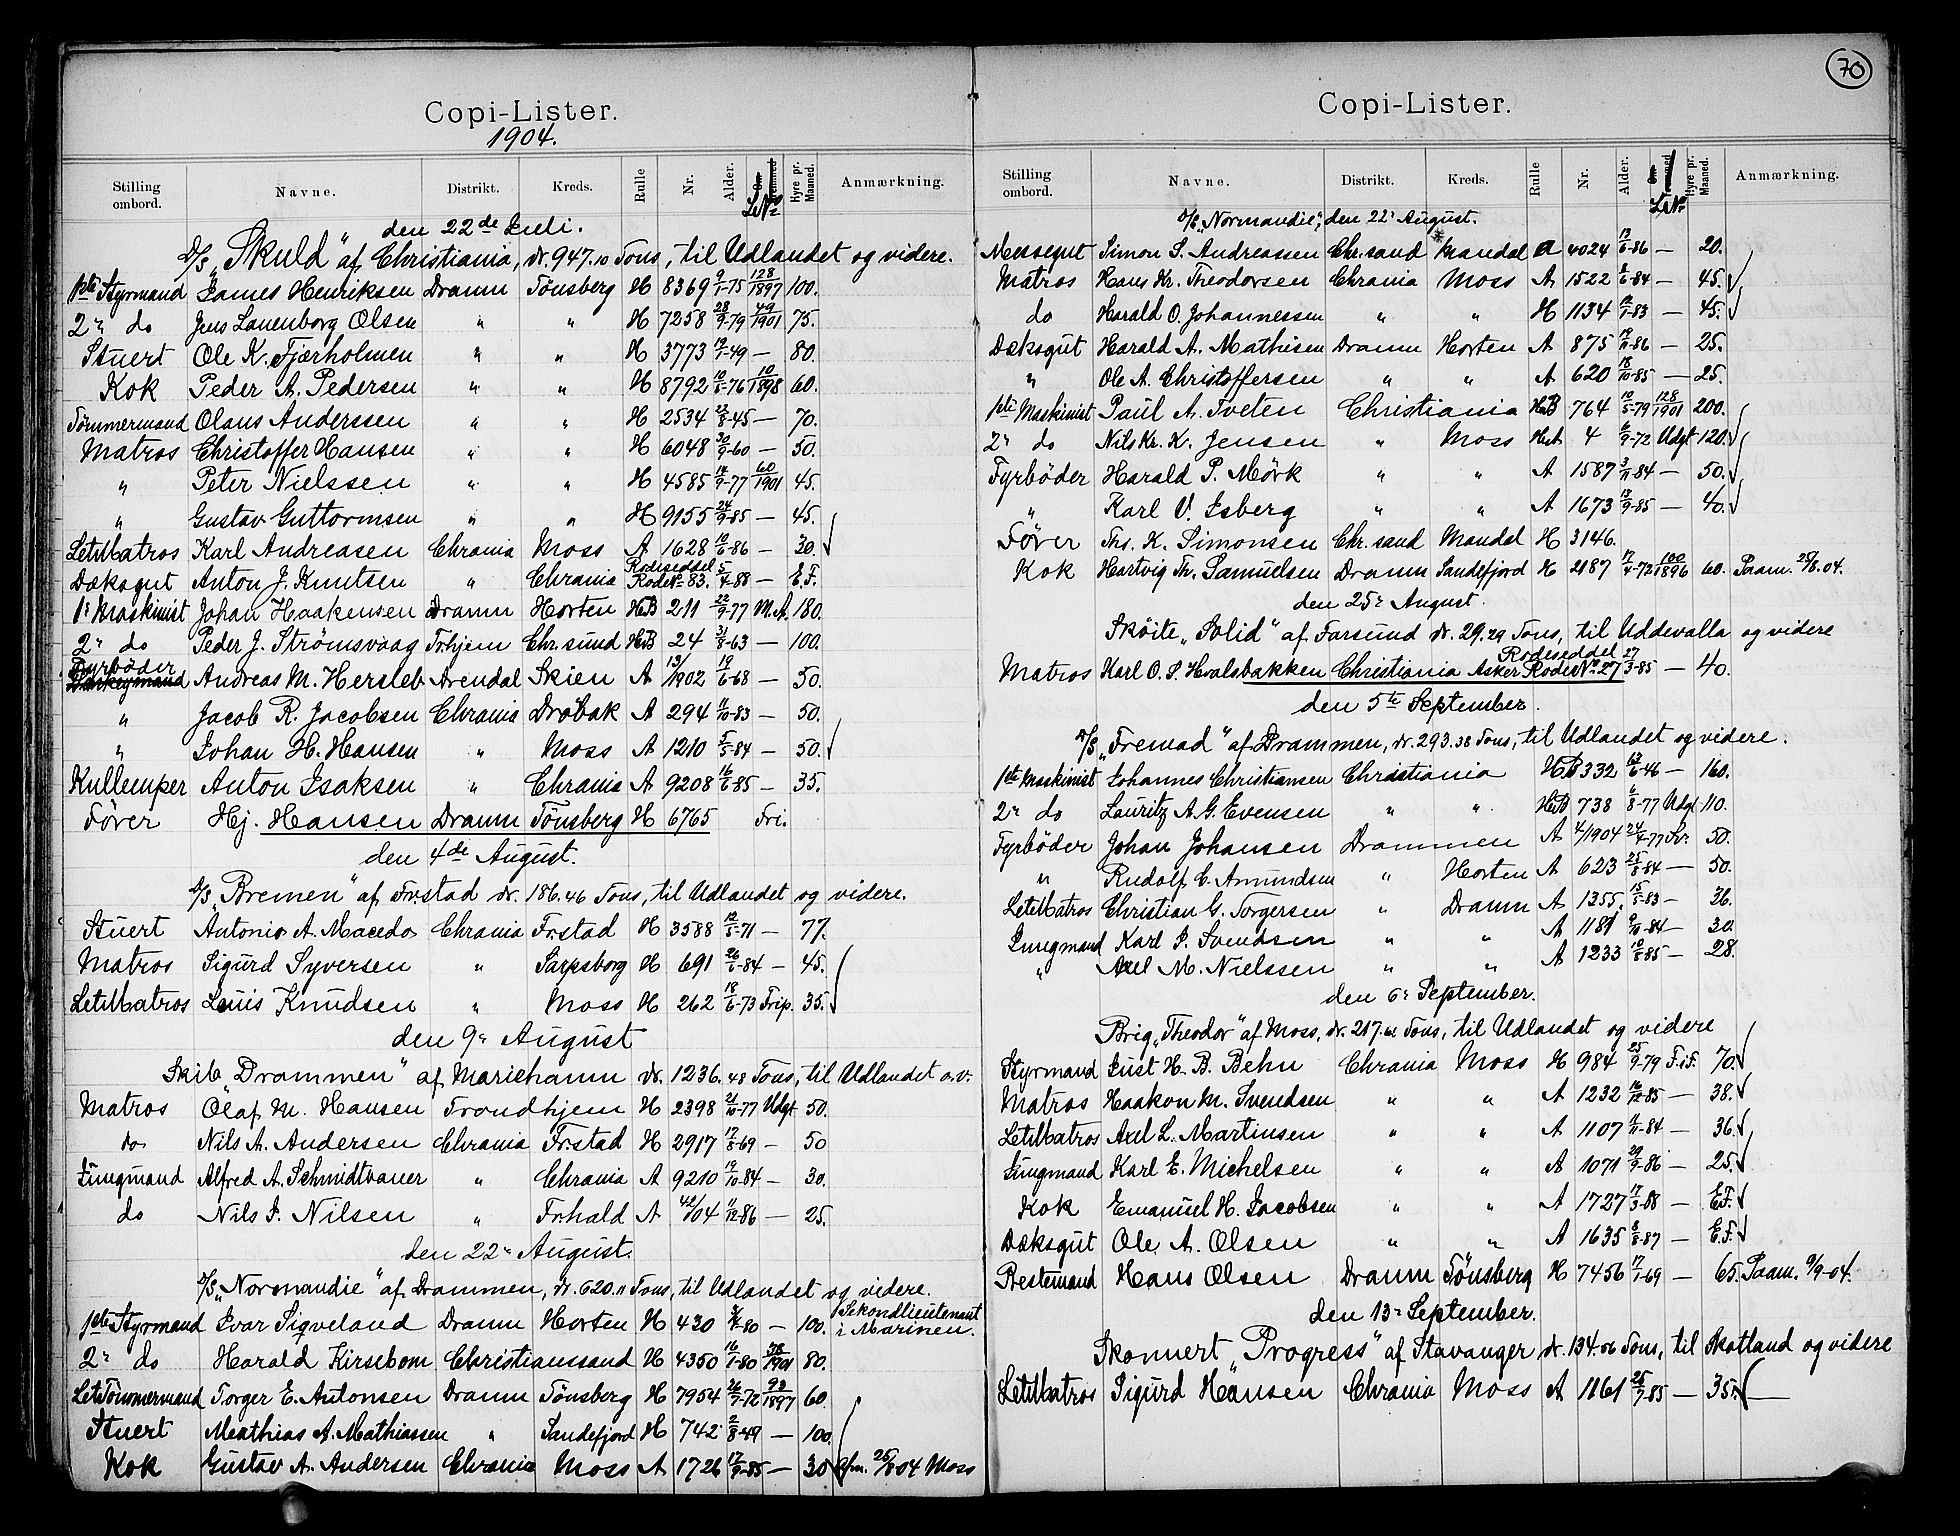 Copi-Lister.
1904.
Stilling ombord. Navne. Distrikt. Kreds. Rulle Nr. Alder. Hyre pr. Maaned. Anmærkning.
den 22de Juli.
D/S „Skuld" af Christiania, dr. 947.10 Tons, til Udlandet og videre.
1ste Styrmand James Henriksen Dramm Tönsberg H 8369 9/1-75 128/1897 100.
2n do Jens Lauenborg Olsen " " H 7258 28/9-79 49/1901 75.
Stuert Ole K. Fjærholmen " " H 3773 -49 — 80.
Kok Peder A. Pedersen " " H 8792 -76 10/1898 60.
Tömmermand Olaus Anderssen " " H 2534 23/8-45 — 70.
Matros Christoffer Hansen " " H 6048 30/9-60 — 50.
" Peter Nielssen " " H 4585 14/9-77 60/1901 45.
" Gustav Guttormsen " " H 9155 24/9-85 — 45.
LetMatros Karl Andreasen Chrania Moss A 1628 10/6-86 — 30.
Dæksgut Anton J. Knutsen " Chrania Rodeseddel Rode No 83. 5/4-88 — E.F.
1n Maskinist Johan Haakensen Dramm Horten HB 211 22/9-77 M.A. 180.
2n do Peder J. Strømsvaag Tr.hjem Chr.sund HB 24 31/8-63 — 100.
Fyrbøder Andreas M. Hersleb Arendal Skien A 13/1902 19/6-68 — 50.
" Jacob R. Jacobsen Chrania Drøbak A 294 11/10-83 — 50.
" Johan H. Hansen " Moss A 1210 5/5-84 — 50.
Kullemper Anton Isaksen " Chrania A 9208 16/6-85 — 35.
Føver Hj. Hansen Dramm Tönsberg H 6765 Fri.
den 4de August.
D/S „Bremen" af Fr.stad dr. 186.46 Tons, til Udlandet og videre.
Stuert Antonio A. Macedo Chrania Frstad H 3588 12/5-71 — 77.
Matros Sigurd Syversen " Sarpsborg H 691 26/6-84 — 45.
LetMatros Louis Knudsen " Moss H 262 18/6-73 Frip. 35.
den 9n August
Skib „Drammen" af Mariehamn dr. 1236.48 Tons, til Udlandet o.v.
Matros Olaf M. Hansen Trondhjem H 2398 21/10-77 Udgt 50.
do Nils A. Andersen Chrania Fr.stad H 2917 17/8-69 — 50
Jungmand Alfred A. Schmidtbauer " Chrania A 9210 19/10-84 — 30.
do Nils J. Nilsen " Frhald A 42/04 11/12-86 — 25.
den 22n August.
D/S „Normandie" af Drammen, dr. 620.11 Tons, til Udlandet og videre.
1ste Styrmand Ivar Sigveland Dramm Horten H 430 -80 — 100. Sekondlieutenant i Marinen.
2n do Harald Kirsebom Christianssand H 4350 16/1-80 78/1901 80.
LetTömmermand Torger E. Antonsen Dramm Tönsberg H 7954 26/7-72 93/1897 60.
Stuert Mathias A. Mathiassen " Sandefjord H 742 2/8-49 — 100.
Kok Gustav A. Andersen Chrania Moss A 1726 17/9-85 — 30 Afm. 25/8 04 Moss
70
Copi-Lister.
Stilling ombord. Navne. Distrikt. Kreds. Rulle Nr. Alder. Hyre pr. Maaned. Anmærkning.
D/S „Normandie", den 22n August.
Messegut Simon S. Andreassen Chr.sand Mandal A 4024 13/6-86 — 20.
Matros Hans Kr. Theodorsen Chrania Moss A 1522 -84 — 45.
do Harald O. Johannessen " " H 1134 -83 — 45.
Dæksgut Harald A. Mathisen Dramm Horten A 875 19/11-86 — 25.
" Ole A. Christoffersen " " A 620 18/10-85 — 25.
1ste Maskinist Paul A. Tveten Christiania HB 764 10/5-79 128/1901 200.
2n do Nils Kr. K. Jensen " Moss 4 6/9-72 Udgt 120.
Fyrbøder Harald P. Mörk " " A 1587 3/11-84 — 50.
" Karl V. Esberg " " A 1673 13/9-85 — 40.
Føver Ths. K. Simonsen Chr.sand Mandal H 3146.
Kok Hartvig Th. Samuelsen Dramm Sandefjord H 2187 17/4-72 100/1896 60. Paam. 25/8.04.
den 25n August.
Skøite „Solid" af Farsund dr. 29.29 Tons, til Uddevalla og videre
Matros Karl O. S. Hvalsbakken Christiania Asker Rodeseddel Rode No 27 27/3-85 — 40.
den 5te September.
D/S „Fremad" af Drammen, dr. 293.38 Tons, til Udlandet og videre.
1ste Maskinist Johannes Christiansen Christiania HB 332 -46 — 160.
2n do Lauritz A. G. Evensen " " HB 738 6/8-77 Udgt 110.
Fyrbøder Johan Johansen Drammen A 4/1904 24/4-77 50.
" Rudolf C. Amundsen " Horten A 623 25/8-84 — 50.
LetMatros Christian G. Torgersen " Dramm A 1355. 15/5-83 — 36.
Jungmand Karl J. Svendsen " " A 1181 9/10-84 — 30.
" Axel M. Nielssen " " A 1233 10/8-85 — 28.
den 6n September.
Brig „Theodor" af Moss, dr. 217. Tons, til Udlandet og videre
Styrmand Just H. B. Behn Chrania Moss H 984 25/9-79 F.F. 70.
Matros Haakon M. Svendsen " " A 1232 16/12-85 — 38.
LetMatros Axel L. Martinsen " " A 1107 -84 — 36.
Jungmand Karl E. Michelsen " " A 1071 29/9-86 — 25.
Kok Emanuel H. Jacobsen " " A 1727 17/3-88 — E.F.
Dæksgut Ole A. Olsen " " A 1635 -87 — E.F.
Bestemand Hans Olsen Dramm Tönsberg H 7456 17/1-69 — 65. Paam. 9/9-04.
den 13n September.
Skonnert „Progress" af Stavanger dr. 134.06 Tons, til Skotland og videre
LetMatros Sigurd Hansen Chrania Moss A 1161 25/7-85 — 35.